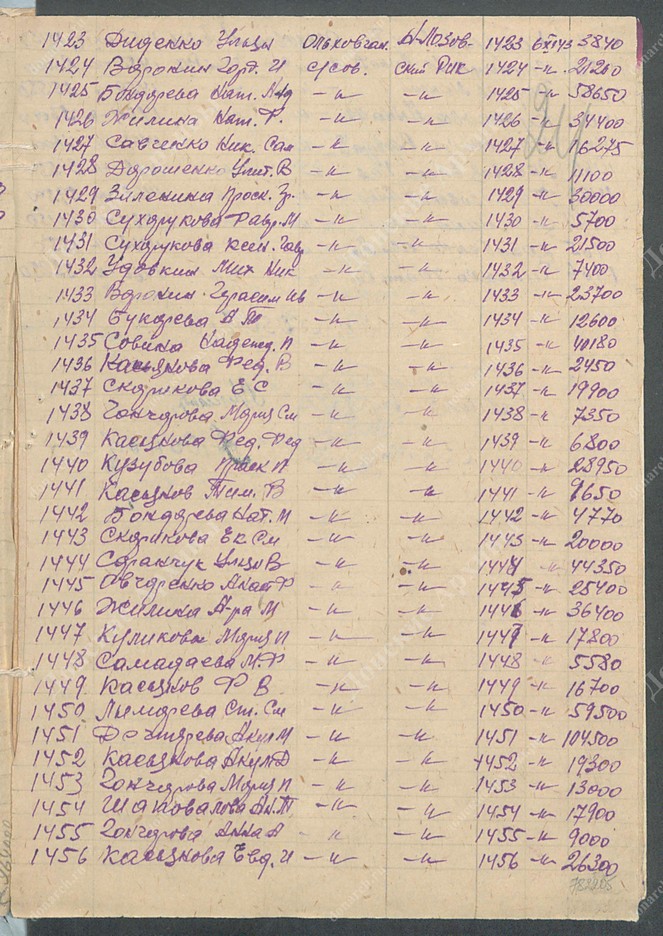 1423 Диденко Ульян Ольховчан. Н-Мозов- 1423 6/XI 43 3840
1424 Воронин Горд. И с/сов. ский Рик 1424 -"- 21260
1425 Бондарева Нат. -"- -"- 1425 -"- 58650
1426 Жилина Нат. Ф. -"- -"- 1426 -"- 34400
1427 Савченко Ник. Сам -"- -"- 1427 -"- 16275
1428 Дорошенко Улит. В -"- -"- 1428 -"- 11100
1429 Зиленина Проск. Гр. -"- -"- 1429 -"- 30000
1430 Сухорукова Февр. М -"- -"- 1430 -"- 5700
1431 Сухорукова Ксен. Гавр -"- -"- 1431 -"- 21500
1432 Удовкин Мих Ник -"- -"- 1432 -"- 7400
1433 Воронин Герасим Ив -"- -"- 1433 -"- 23700
1434 Букарева А Т -"- -"- 1434 -"- 12600
1435 Совина Надежд. П -"- -"- 1435 -"- 40180
1436 Касьянова Фед. В -"- -"- 1436 -"- 2450
1437 Скорикова Е. С -"- -"- 1437 -"- 19900
1438 Гончарова Мария См -"- -"- 1438 -"- 7350
1439 Касьянова Фед. Фед -"- -"- 1439 -"- 6800
1440 Кузубова Праск П -"- -"- 1440 -"- 28950
1441 Касьянов Тим. В -"- -"- 1441 -"- 9650
1442 Бондарева Нат. М -"- -"- 1442 -"- 4770
1443 Скорикова Ек См -"- -"- 1443 -"- 20000
1444 Саранчук Ульян В -"- -"- 1444 -"- 44350
1445 Овчаренко Анат Ф -"- -"- 1445 -"- 25400
1446 Жилина А-ра М -"- -"- 1446 -"- 36400
1447 Куликова Мария П -"- -"- 1447 -"- 17800
1448 Самадаева М. Ф -"- -"- 1448 -"- 5580
1449 Касьянов Ф В -"- -"- 1449 -"- 16700
1450 Лымарева Ст. См -"- -"- 1450 -"- 59500
1451 Дегтярева Акул М -"- -"- 1451 -"- 104500
1452 Касьянова Акул Д -"- -"- 1452 -"- 19300
1453 Гончарова Мария П -"- -"- 1453 -"- 13000
1454 Шаповалова Ан. Т -"- -"- 1454 -"- 17900
1455 Гончарова Анна А -"- -"- 1455 -"- 9000
1456 Касьянова Евд. И -"- -"- 1456 -"- 26300